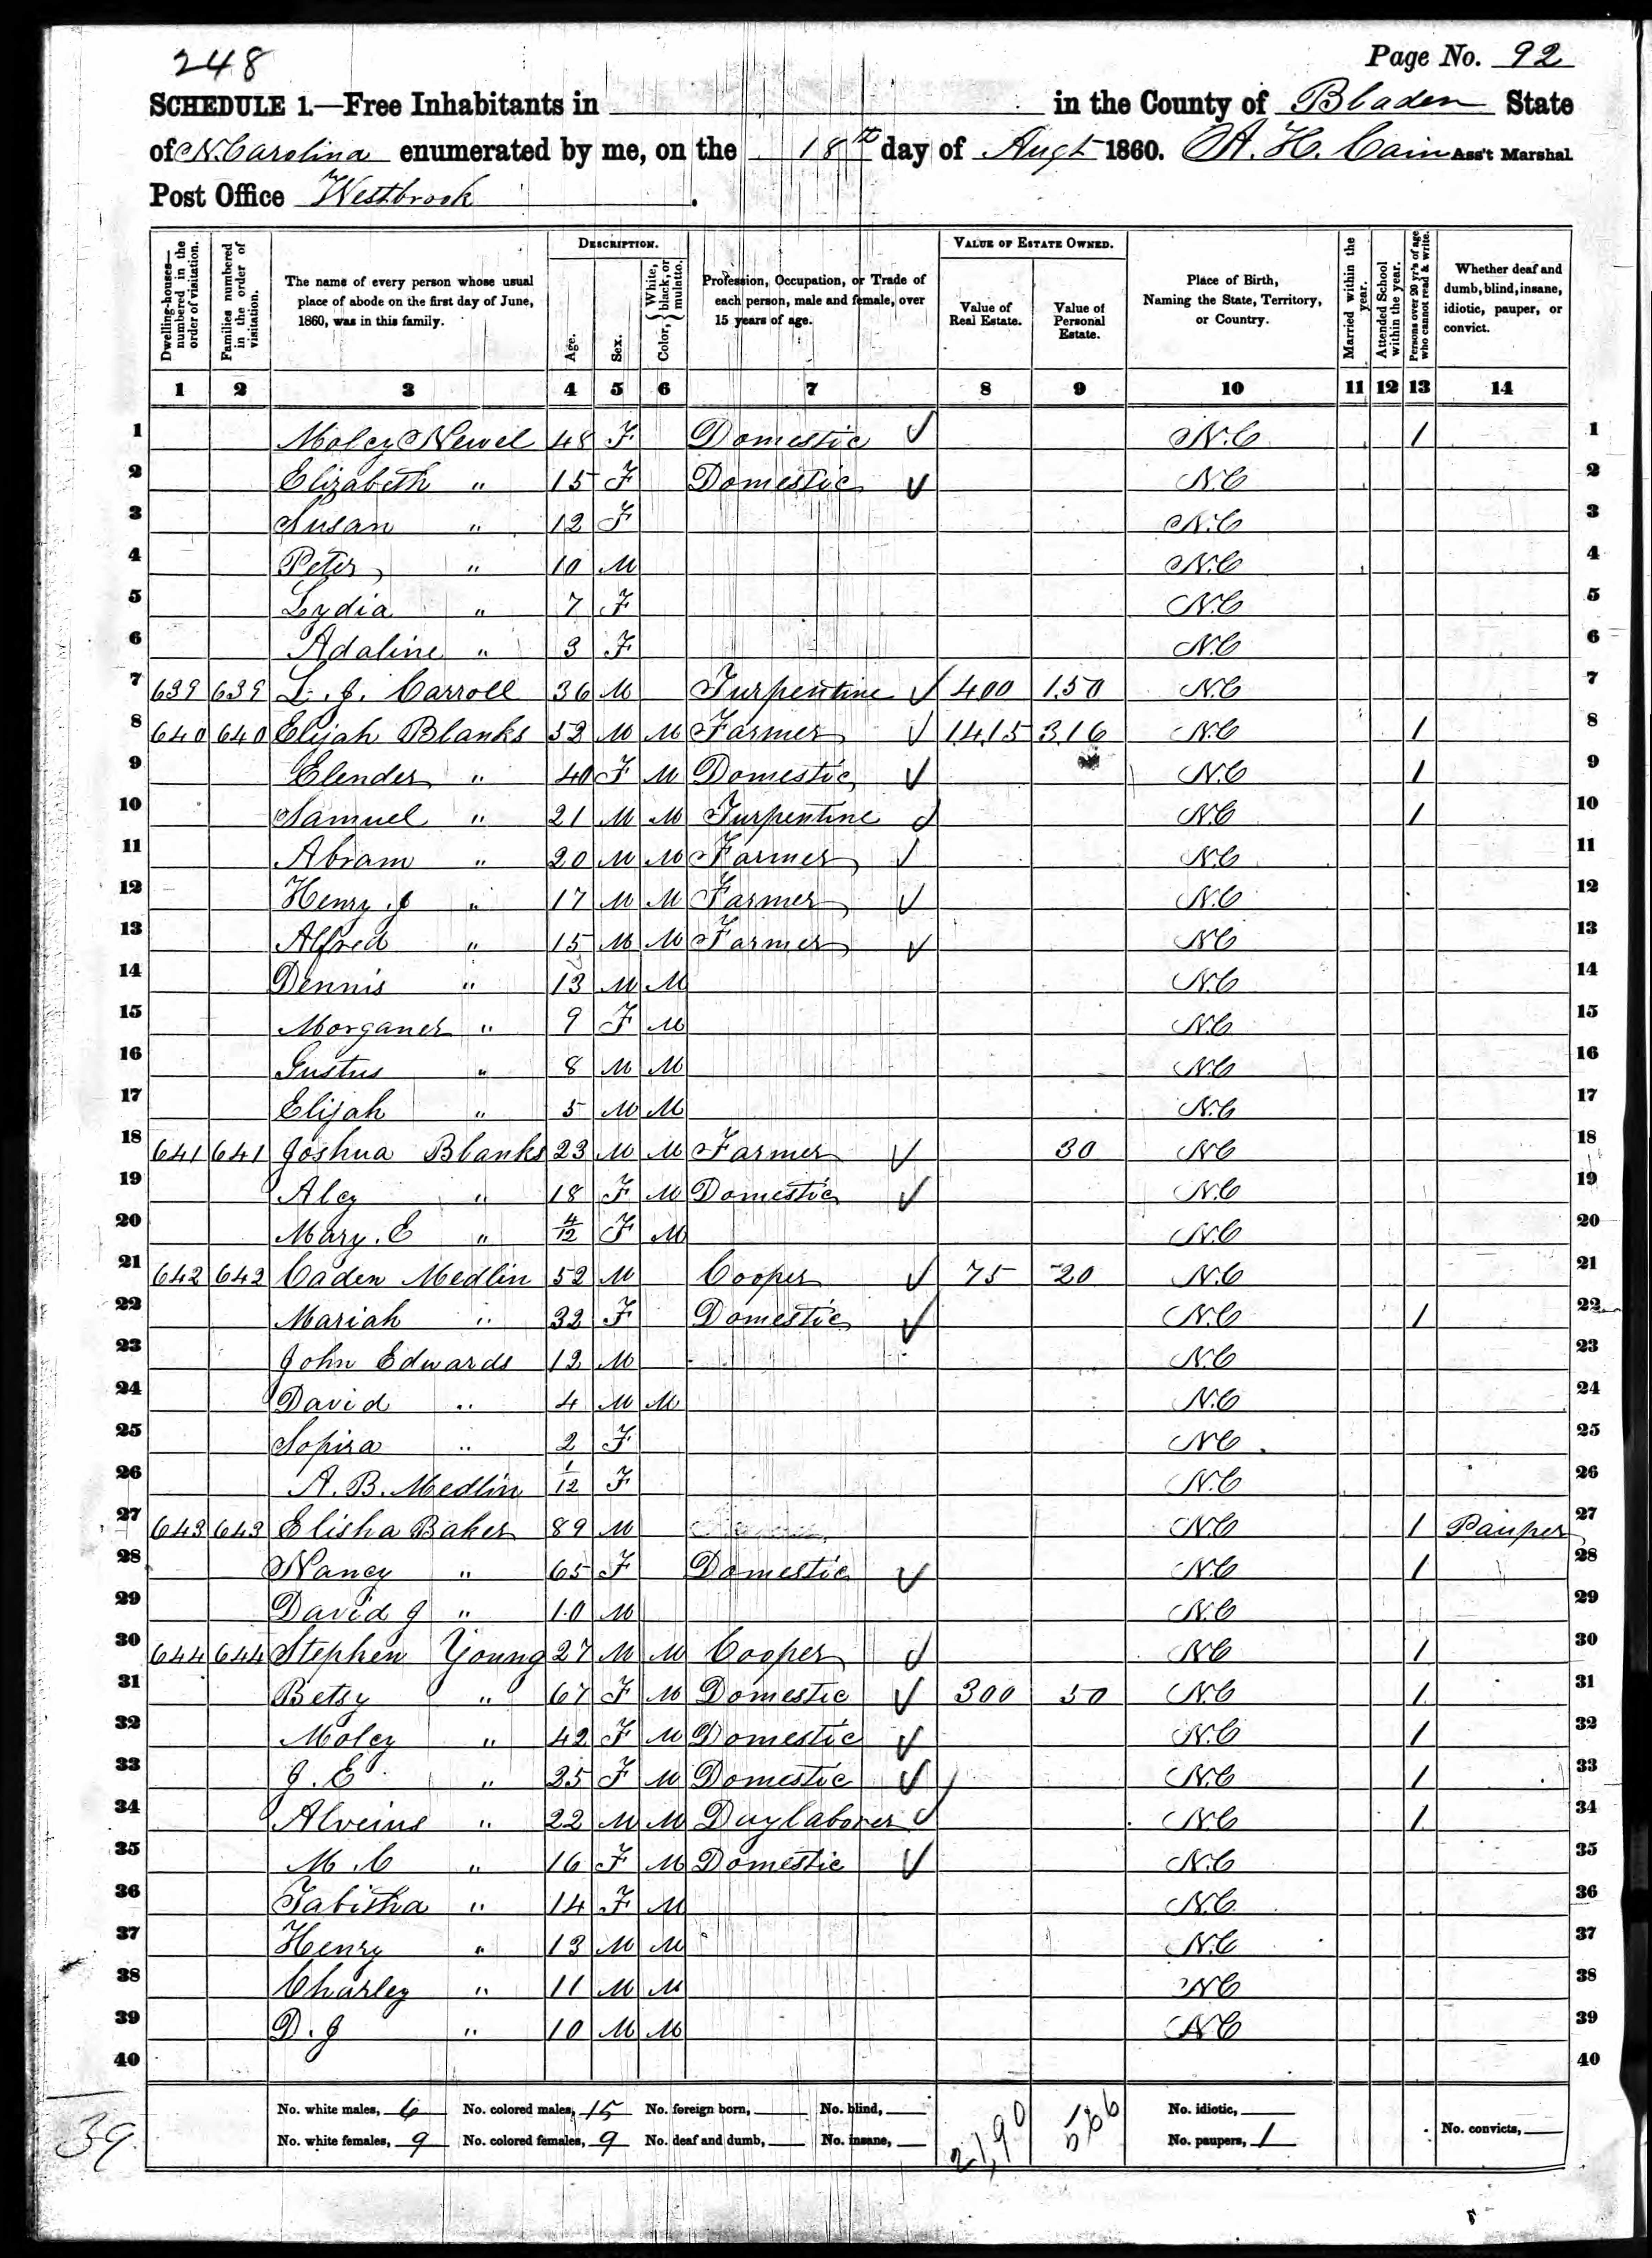 248
Page No. 92
SCHEDULE 1.—Free Inhabitants in in the County of Bladen State
of N. Carolina enumerated by me, on the 18th day of Augt 1860. A. H. Cain Ass't Marshal.
Post Office Westbrook.
DESCRIPTION. VALUE OF ESTATE OWNED.
Dwelling-houses—numbered in the order of visitation.
Families numbered in the order of visitation.
The name of every person whose usual place of abode on the first day of June, 1860, was in this family.
Age.
Sex.
Color, } White, black, or mulatto.
Profession, Occupation, or Trade of each person, male and female, over 15 years of age.
Value of Real Estate.
Value of Personal Estate.
Place of Birth, Naming the State, Territory, or Country.
Married within the year.
Attended School within the year.
Persons over 20 yr's of age who cannot read & write.
Whether deaf and dumb, blind, insane, idiotic, pauper, or convict.
1 2 3 4 5 6 7 8 9 10 11 12 13 14
1 Moley Newel 48 F Domestic N.C 1 1
2 Elizabeth " 15 F Domestic N.C 2
3 Susan " 12 F N.C 3
4 Peter " 10 M N.C 4
5 Lydia " 7 F N.C 5
6 Adaline " 3 F N.C 6
7 639 639 L. J. Carroll 36 M Turpentine 400 150 N.C 7
8 640 640 Elijah Blanks 52 M M Farmer 1415 316 N.C 1 8
9 Elender " 40 F M Domestic N.C 1 9
10 Samuel " 21 M M Turpentine N.C 1 10
11 Abram " 20 M M Farmer N.C 11
12 Henry J " 17 M M Farmer N.C 12
13 Alfred " 15 M M Farmer N.C 13
14 Dennis " 13 M M N.C 14
15 Morganer " 9 F M N.C 15
16 Gustus " 8 M M N.C 16
17 Elijah " 5 M M N.C 17
18 641 641 Joshua Blanks 23 M M Farmer 30 N.C 18
19 Alcy " 18 F M Domestic N.C 19
20 Mary. E " 4/12 F M N.C 20
21 642 642 Caden Medlin 52 M Cooper 75 20 N.C 21
22 Mariah " 32 F Domestic N.C 1 22
23 John Edwards 12 M N.C 23
24 David " 4 M M N.C 24
25 Sopira " 2 F N.C 25
26 A. B. Medlin 1/12 F N.C 26
27 643 643 Elisha Baker 89 M N.C 1 Pauper 27
28 Nancy " 65 F Domestic N.C 1 28
29 David J " 10 M N.C 29
30 644 644 Stephen Young 27 M M Cooper N.C 1 30
31 Betsy " 67 F M Domestic 300 50 N.C 1 31
32 Moley " 42 F M Domestic N.C 1 32
33 J. E " 25 F M Domestic N.C 1 33
34 Alveins " 22 M M Daylaborer N.C 1 34
35 M. C " 16 F M Domestic N.C 35
36 Tabitha " 14 F M N.C 36
37 Henry " 13 M M N.C 37
38 Charley " 11 M M N.C 38
39 D. J " 10 M M N.C 39
40 40
No. white males, 6 No. colored males, 15 No. foreign born, No. blind, No. idiotic,
No. white females, 9 No. colored females, 9 No. deaf and dumb, No. insane, 2190 566 No. paupers, 1 No. convicts,
39